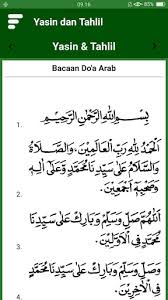 09.16
85%
Yasin dan Tahlil
Yasin & Tahlil
Bacaan Do'a Arab
1. بِسْمِ اللهِ الرَّحْمٰنِ الرَّحِيْمِ
اَلْحَمْدُ لِلّٰهِ رَبِّ الْعَالَمِيْنَ. وَالصَّلَاةُ
وَالسَّلَامُ عَلَى سَيِّدِنَا مُحَمَّدٍ وَعَلَى اٰلِهِ
2. وَصَحْبِهِ اَجْمَعِيْنَ.
اَللّٰهُمَّ صَلِّ وَسَلِّمْ وَبَارِكْ عَلَى سَيِّدِنَا
3. مُحَمَّدٍ فِى الْاَوَّلِيْنَ
وَصَلِّ وَسَلِّمْ وَبَارِكْ عَلَى سَيِّدِنَا مُحَمَّدٍ
4. فِى الْاٰخِرِيْنَ